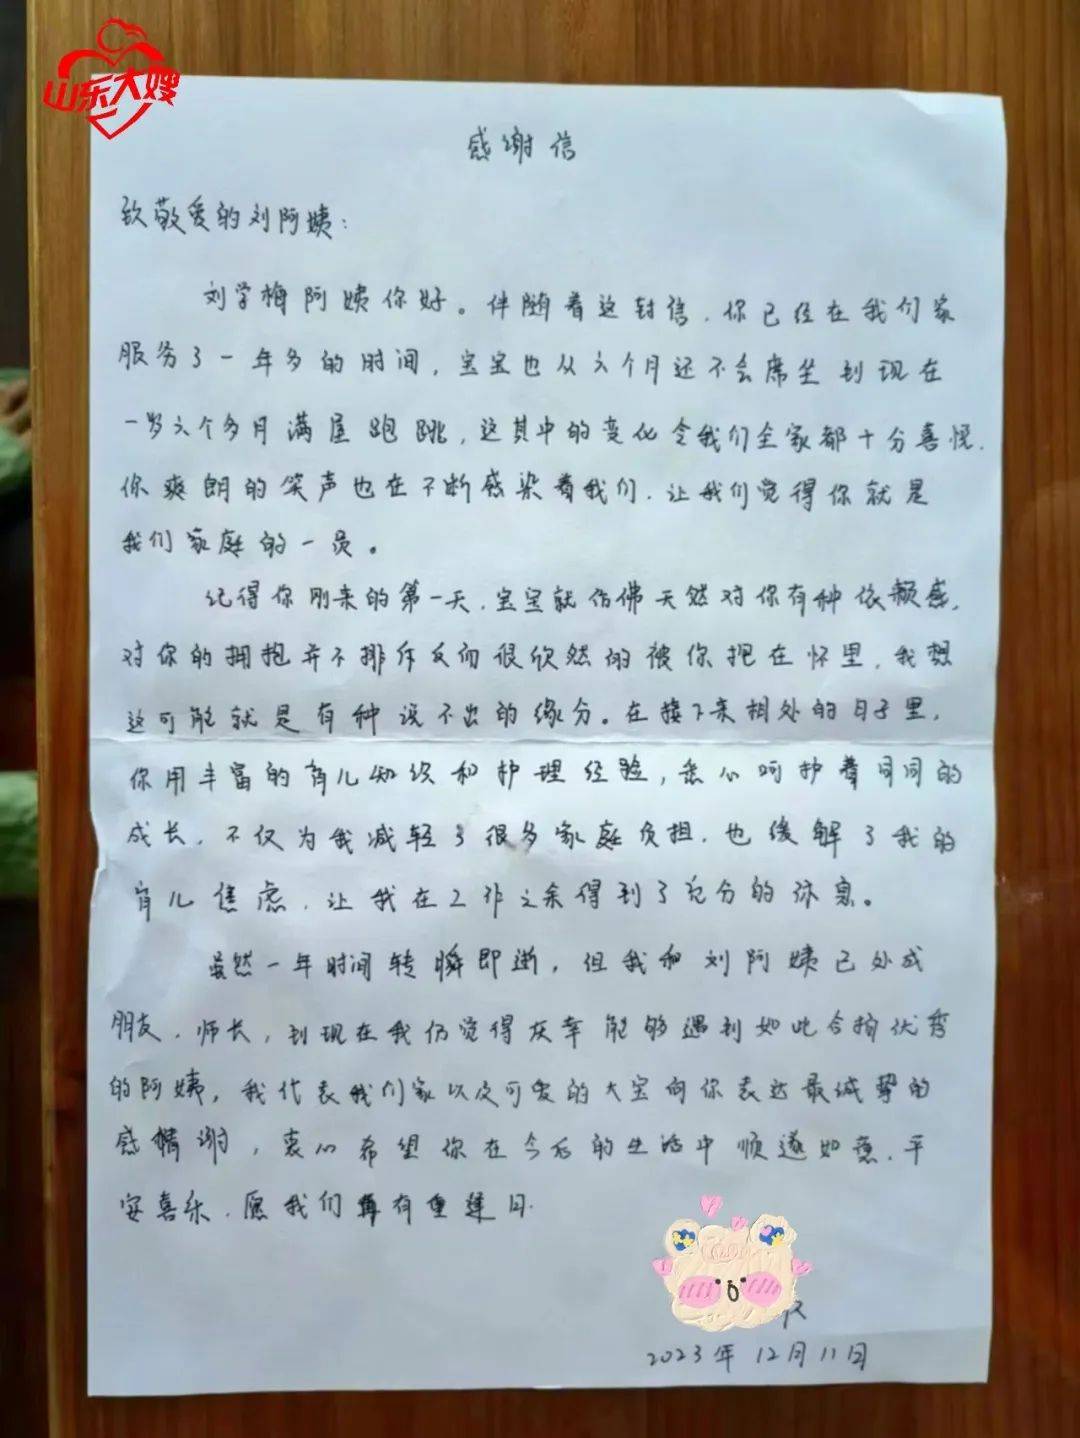 山东大嫂
感谢信
致敬爱的刘阿姨:
刘学梅阿姨你好。伴随着这封信,你已经在我们家
服务了一年多的时间,宝宝也从六个月还不会席坐到现在
一岁六个多月满屋跑跳,这其中的变化令我们全家都十分喜悦.
你爽朗的笑声也在不断感染着我们,让我们觉得你就是
我们家庭的一员。
记得你刚来的第一天,宝宝就仿佛天然对你有种依赖感,
对你的拥抱并不排斥反而很欣然的被你抱在怀里,我想
这可能就是有种说不出的缘分。在接下来相处的日子里,
你用丰富的育儿知识和护理经验,悉心呵护着同同的
成长,不仅为我减轻了很多家庭负担,也缓解了我的
育儿焦虑,让我在工作之余得到了充分的休息。
虽然一年时间转瞬即逝,但我和刘阿姨已处成
朋友、师长,到现在我仍觉得庆幸能够遇到如此合拍优秀
的阿姨,我代表我们家以及可爱的大宝向你表达最诚挚的
感情谢,衷心希望你在今后的生活中顺遂如意、平
安喜乐,愿我们再有重逢日.
2023年12月11日